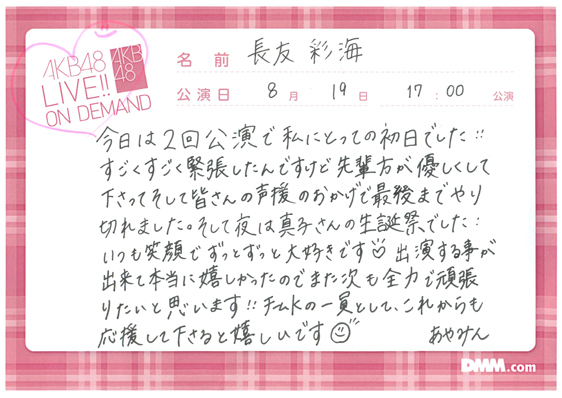 AKB48
LIVE!!
ON DEMAND
AKB
48
名前 長友 彩海
公演日 8月 19日 17:00 公演
今日は2回公演で私にとっての初日でした!!
すごくすごく緊張したんですけど先輩方が優しくして
下さってそして皆さんの声援のおかげで最後までやり
切れました。そして夜は真子さんの生誕祭でした!
いつも笑顔でずっとずっと大好きです♡ 出演する事が
出来て本当に嬉しかったのでまた次も全力で頑張
りたいと思います!! チームKの一員として、これからも
応援して下さると嬉しいです☺
あやみん
DMM.com